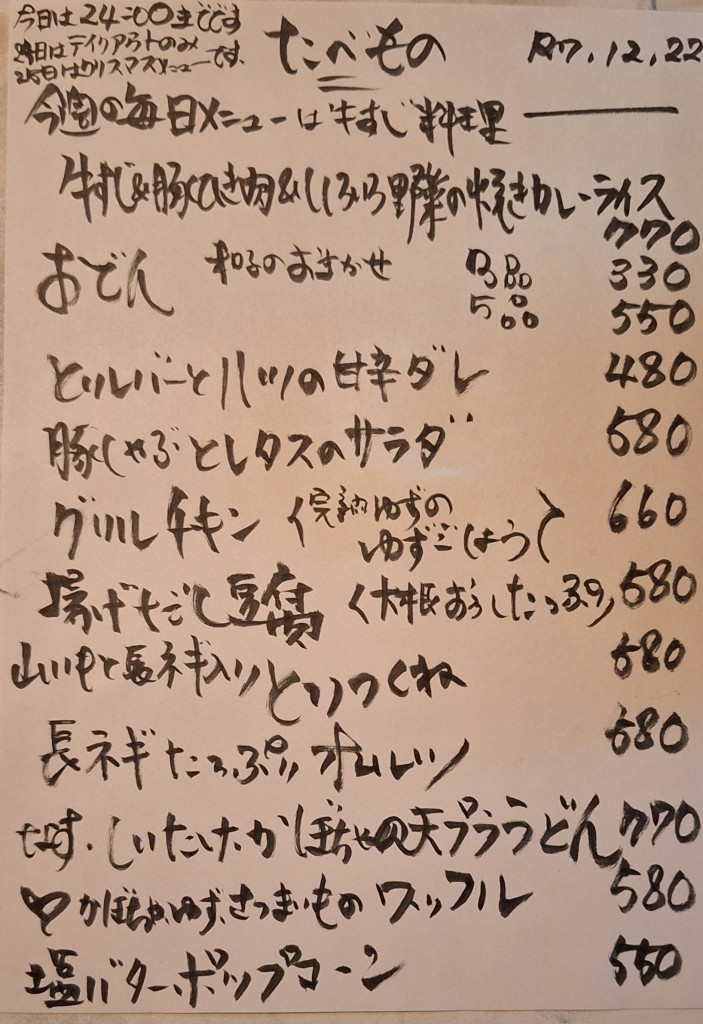 今日は24:00までです
24日はテイクアウトのみ
25日はクリスマスメニューです.
たべもの R7.12.22
今週の毎日メニューは牛すじ料理
牛すじ&豚ひき肉&いろいろ野菜の焼きカレーライス
770
おでん 和子のおまかせ 3品 330
5品 550
とりレバーとハツの甘辛ダレ 480
豚しゃぶとレタスのサラダ 580
グリルチキン (完熟ゆずの 660
ゆずごしょう)
揚げだし豆腐 (大根おろしたっぷり) 580
山いもと長ネギ入りとりつくね 580
長ネギたっぷりオムレツ 580
なす.しいたけ.かぼちゃの天プラうどん 770
♡かぼちゃ.ゆず.さつまいものワッフル 580
塩バターポップコーン 550